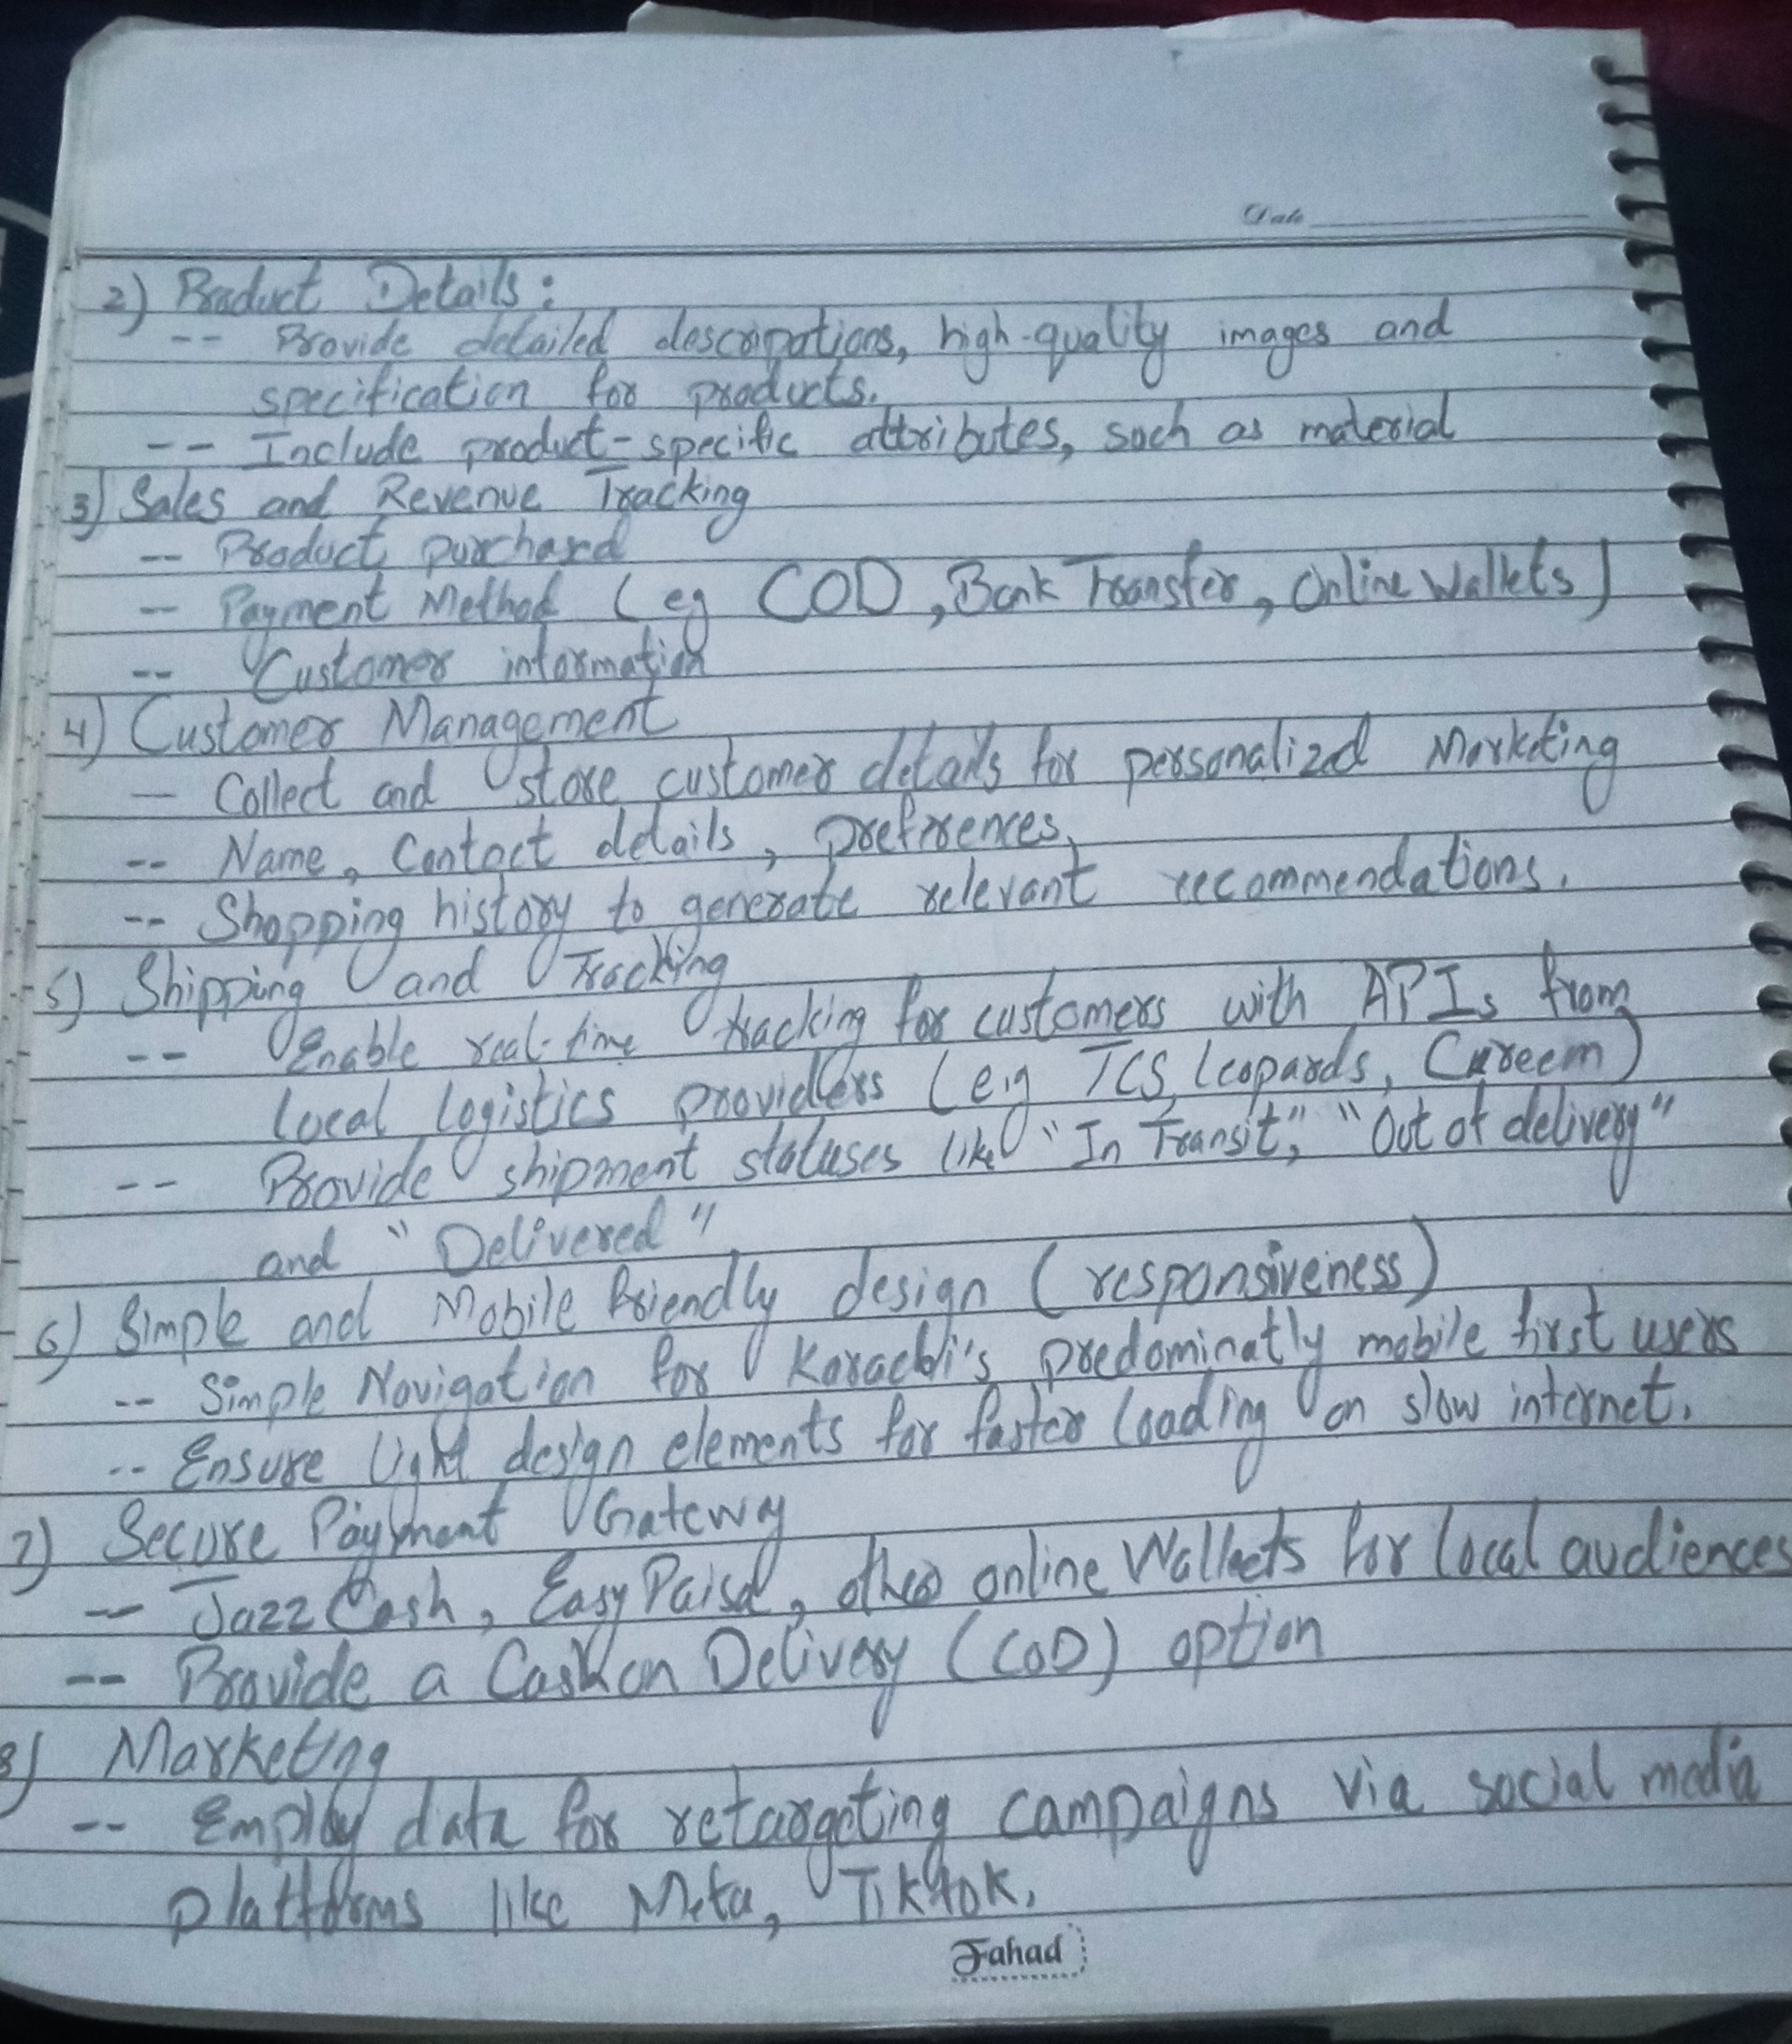 Date
2) Product Details:
-- Provide detailed descriptions, high-quality images and
specification for products.
-- Include product-specific attributes, such as material
3) Sales and Revenue Tracking
-- Product purchased
-- Payment Method (eg COD, Bank Transfer, Online Wallets)
-- Customer information
4) Customer Management
-- Collect and store customer details for personalized Marketing
-- Name, Contact details, prefrences,
-- Shopping history to generate relevant recommendations.
5) Shipping and Tracking
-- Enable real-time tracking for customers with APIs from
local logistics providers (e.g TCS, Leopards, Careem)
-- Provide shipment statuses like "In Transit", "Out of delivery"
and "Delivered"
6) Simple and Mobile friendly design (responsiveness)
-- Simple Navigation for Karachi's predominatly mobile first users
-- Ensure light design elements for faster loading on slow internet.
7) Secure Payment Gateway
-- JazzCash, EasyPaisa, other online Wallets for local audiences
-- Provide a Cash on Delivery (COD) option
8) Marketing
-- Employ data for retargeting campaigns via social media
platforms like Meta, Tiktok.
Fahad